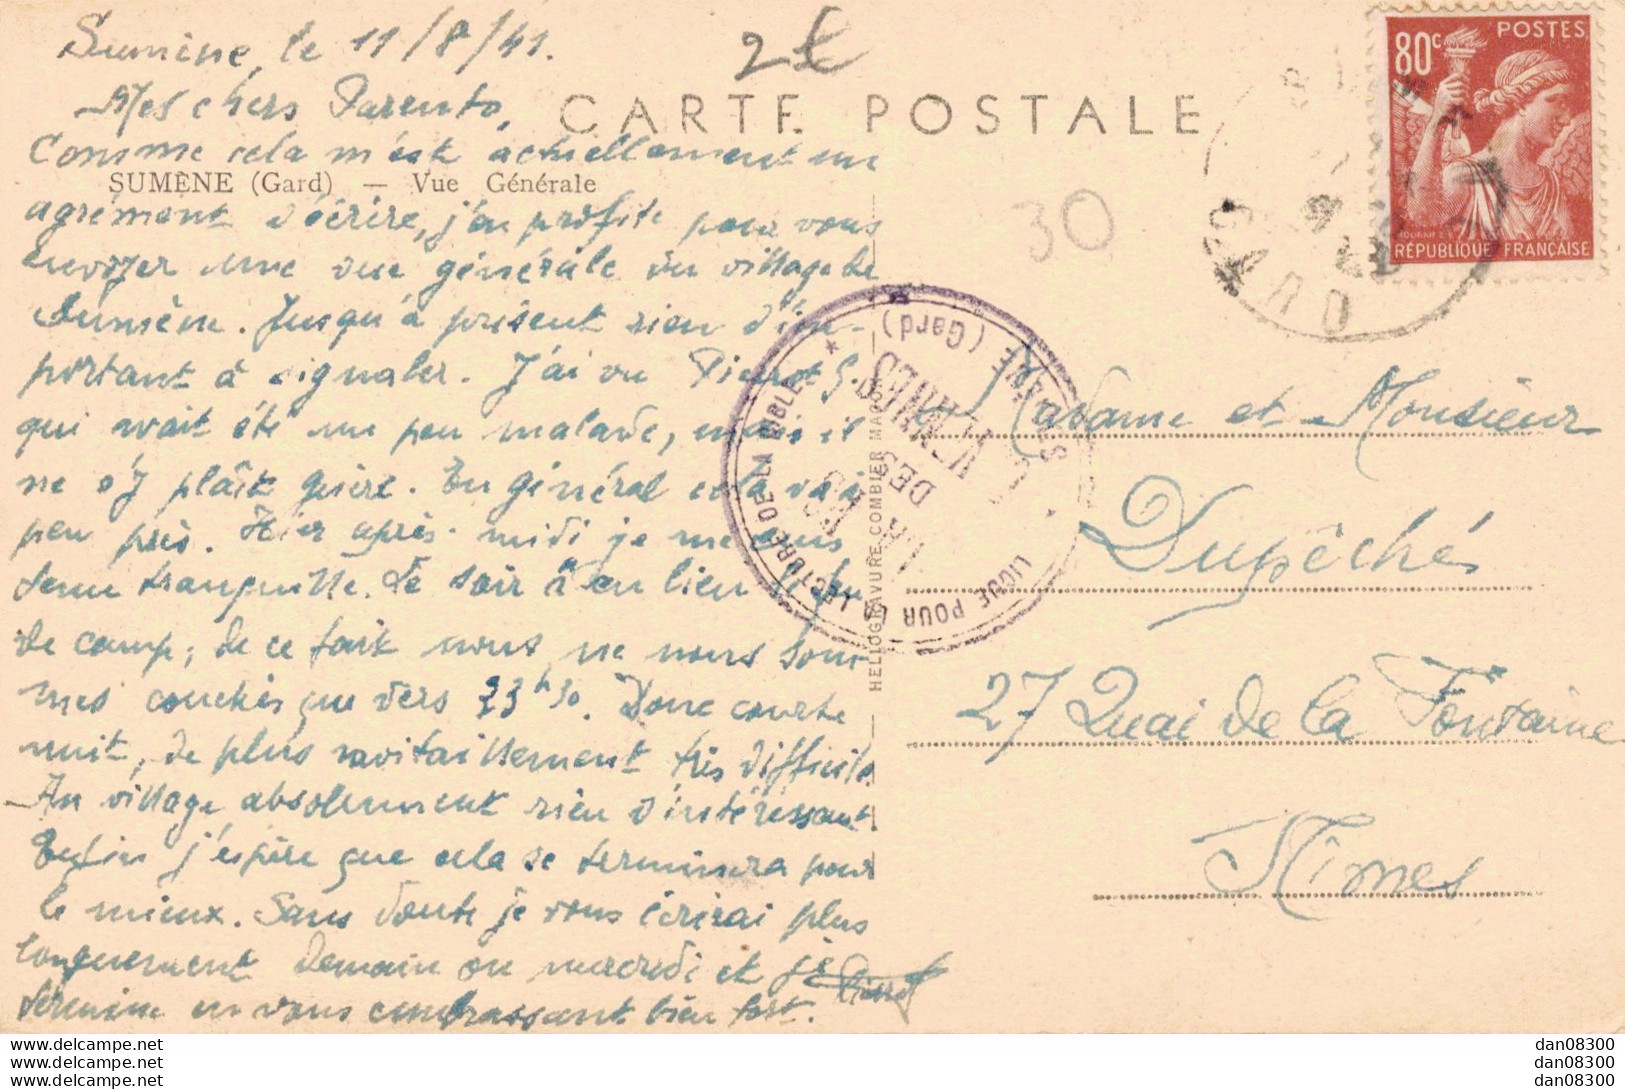 Sumène, le 11/8/41.
2€
Mes chers Parents,
CARTE POSTALE
80c
POSTES
RÉPUBLIQUE FRANÇAISE
Comme cela m'est actuellement un
SUMÈNE (Gard) — Vue Générale
agrément d'écrire, j'en profite pour vous
envoyer une vue générale du village de
Sumène. Jusqu'à présent rien d'im-
portant à signaler. J'ai vu Pierrot G.
qui avait été un peu malade, mais il
ne s'y plaît guère. En général cela va à
peu près. Hier après-midi je me suis
tenu tranquille. Le soir a eu lieu le feu
de camp; de ce fait nous ne nous som-
mes couchés que vers 23h30. Donc courte
nuit, de plus ravitaillement très difficile.
Au village absolument rien d'intéressant
Enfin j'espère que cela se terminera pour
le mieux. Sans doute je vous écrirai plus
longuement demain ou mercredi et je
termine en vous embrassant bien fort.
Pierrot
30
GARD
LIGUE POUR LA LECTURE DE LA BIBLE
SUMÈNE (Gard)
DES
VENNES
HELIOGRAVURE COMBIER MACON
Madame et Monsieur
Dupêché
27 Quai de la Fontaine
Nîmes
dan08300
dan08300
dan08300
www.delcampe.net
www.delcampe.net
www.delcampe.net